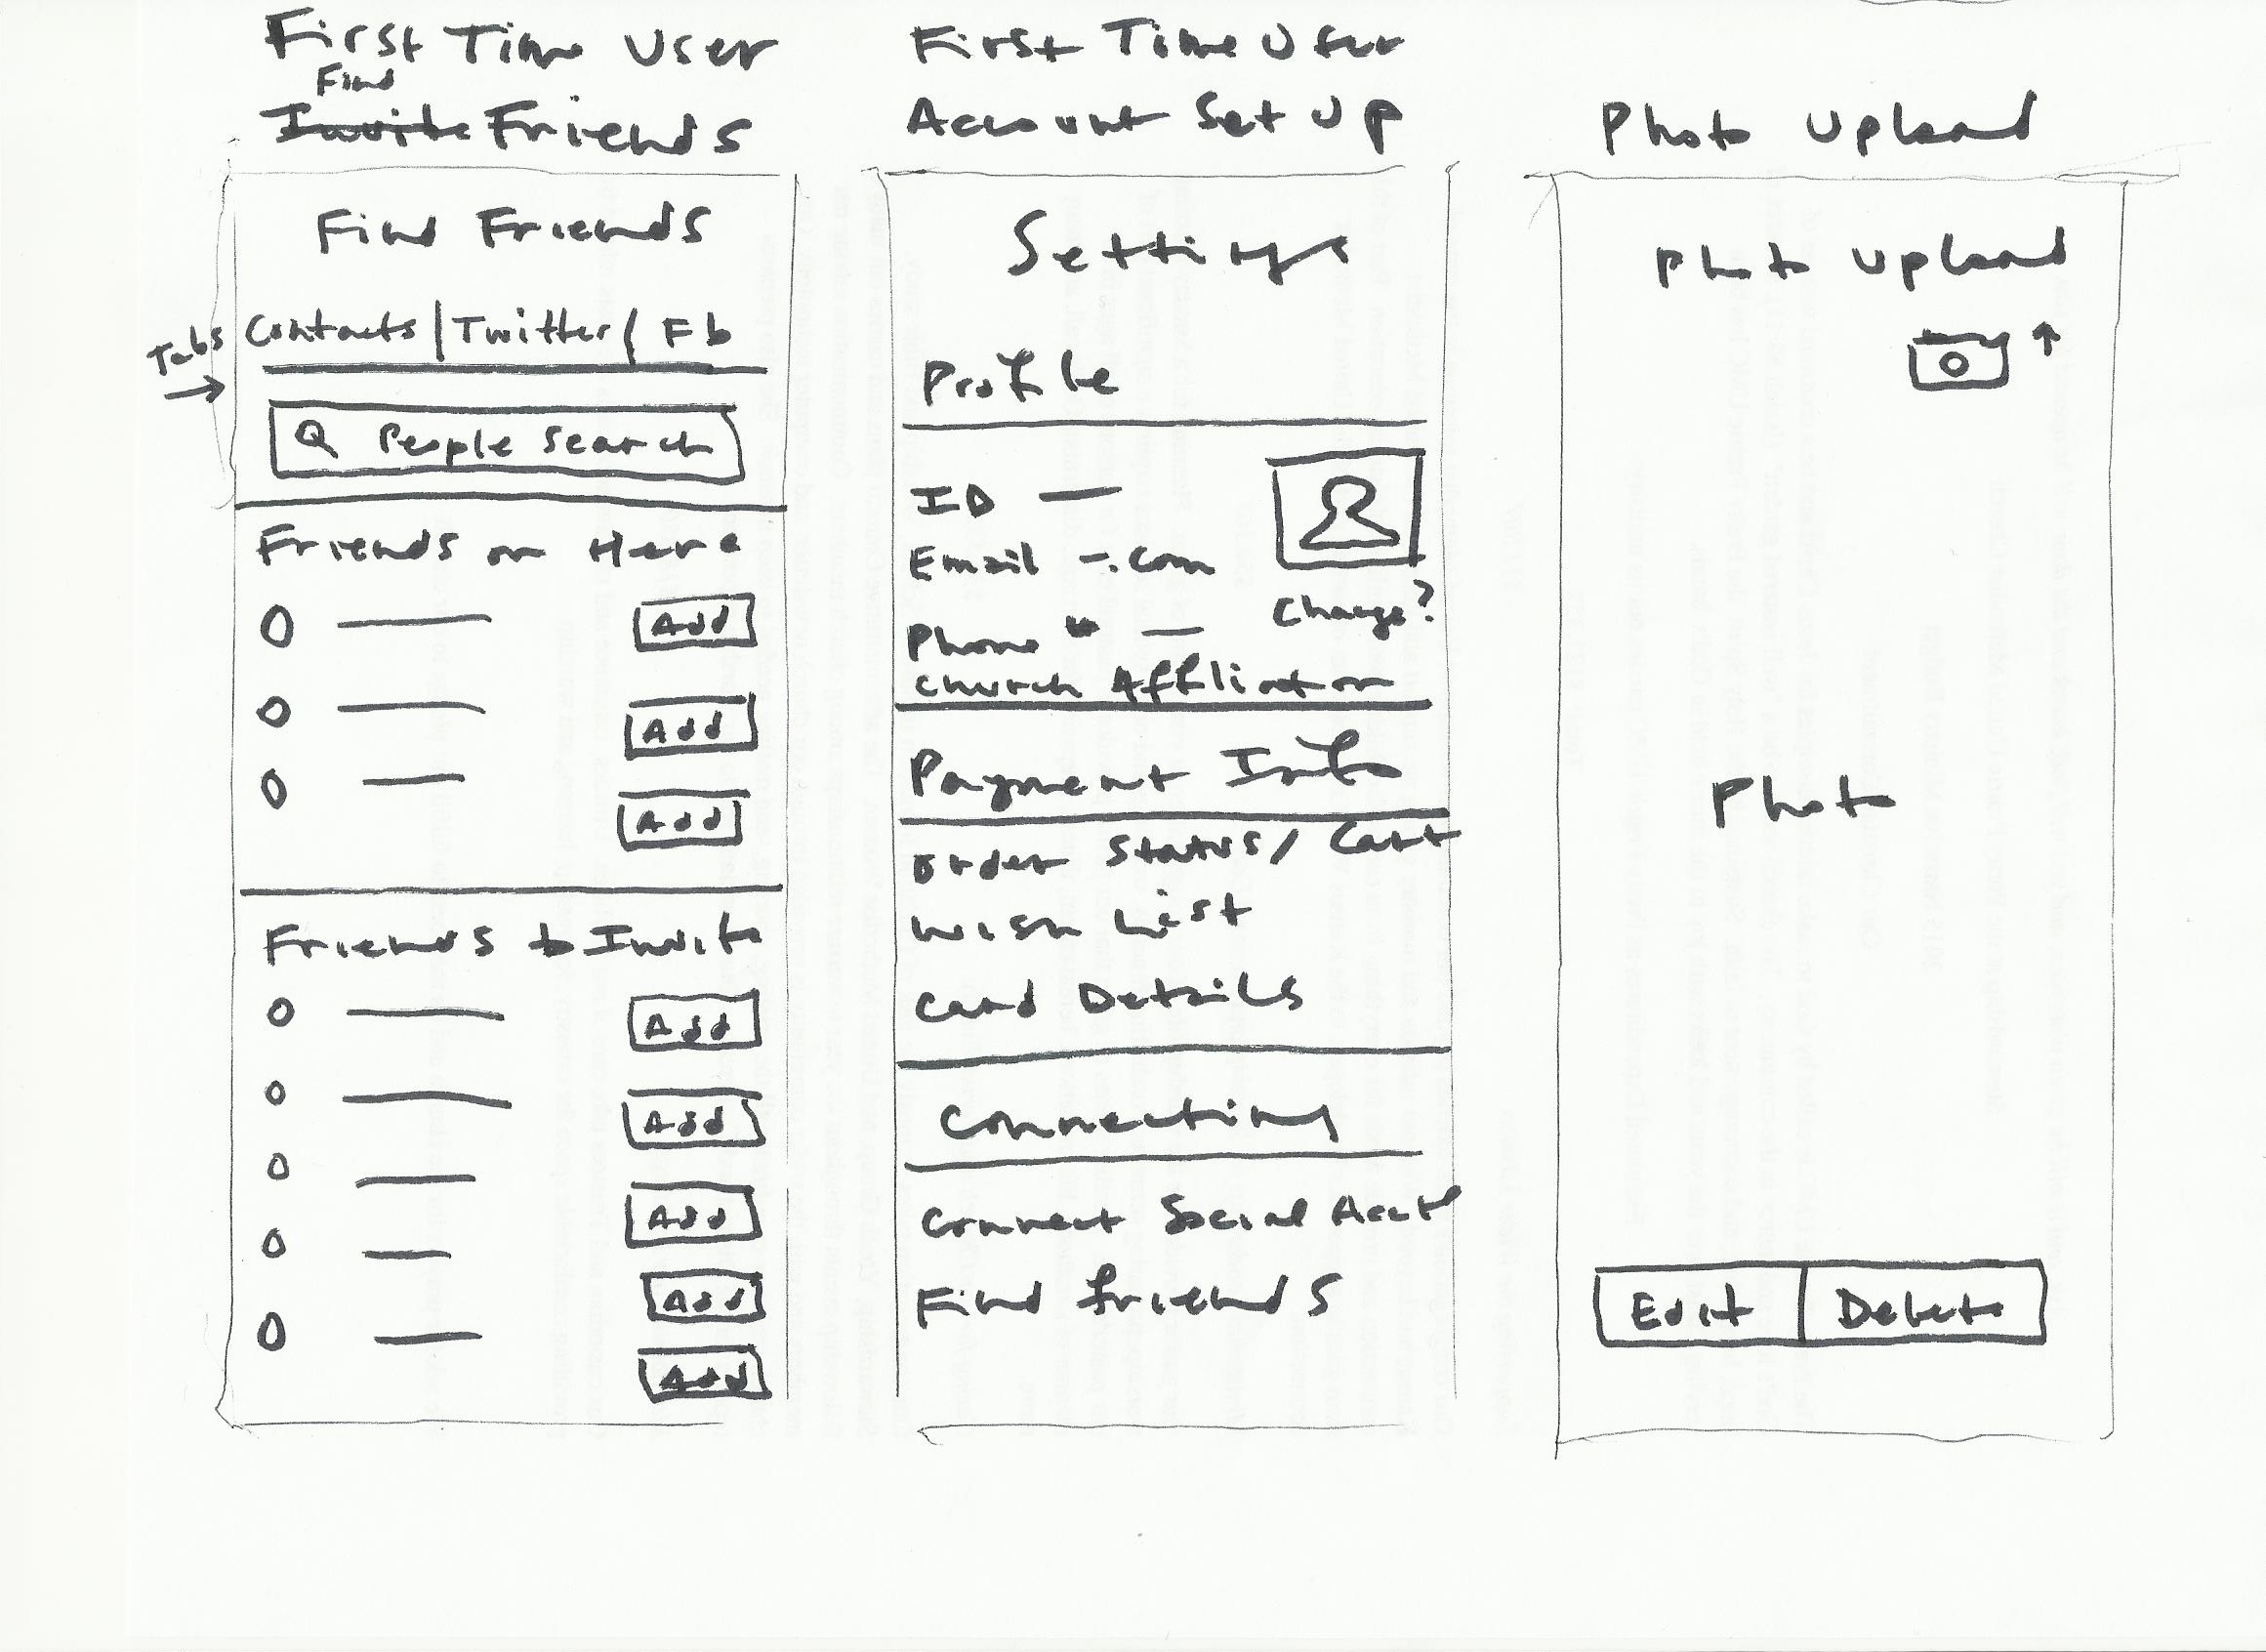 First Time User
Find
Invite Friends
Find Friends
Tabs
Contacts | Twitter | Fb
People Search
Friends on Here
Add
Add
Add
Friends to Invite
Add
Add
Add
Add
Add
First Time User
Account Set Up
Settings
Profile
ID
Email -.com
Change?
Phone #
Church Affliation
Payment Info
Order Status / Cart
Wish List
Card Details
Connecting
Connect Social Acct
Find friends
Photo Upload
Photo Upload
Photo
Edit | Delete